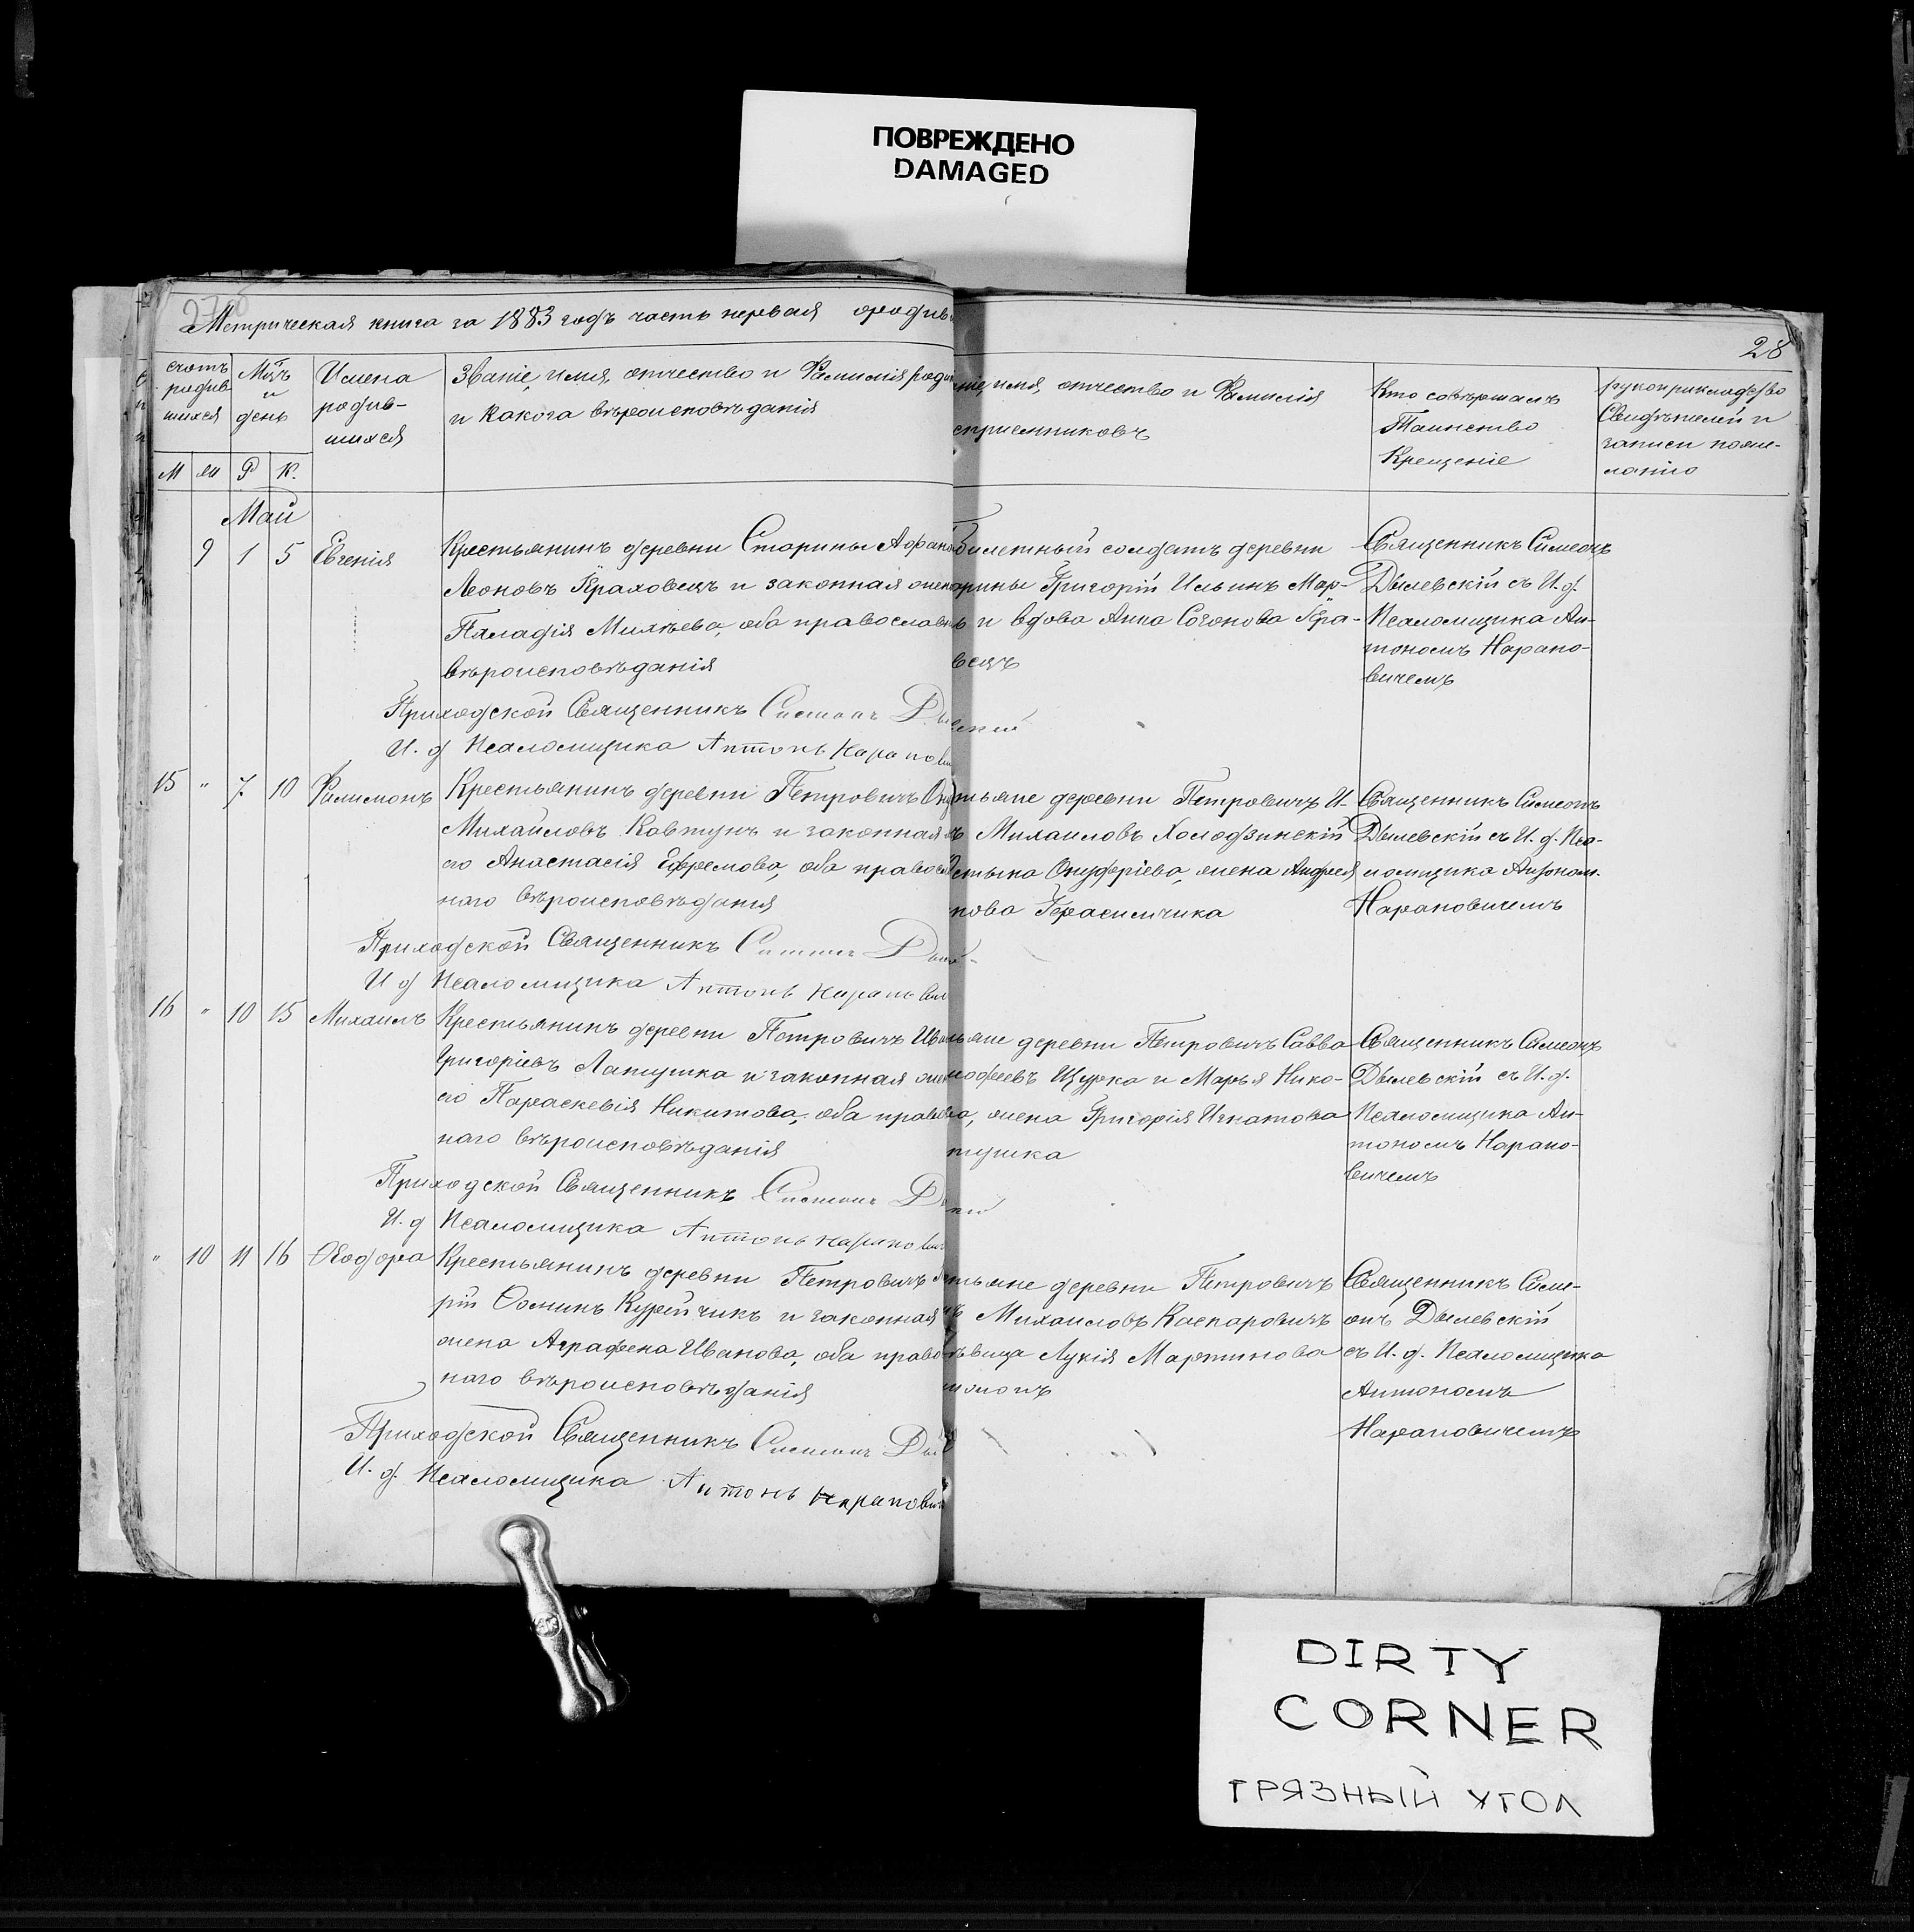 ПОВРЕЖДЕНО
DAMAGED
Метрическая книга за 1883 годъ часть первая о родив
28
счотъ родив шихся
Мцъ и день
Имена родив- шихся
Званіе, имя, отчество и Фамилія роди
и какога вѣроисповѣданія
ніе, имя, отчество и Фамилія
спріемниковъ
Кто совѣршалъ
Таинство
Крещеніе
рукоприкладство
Свидѣтелей и
записи
М
Р
К.
Май
9 1 5 Евгенія
Крестьянинъ деревни Старины
Леоновъ Гераховецъ и законная жен
Паладія Михѣева, оба православ
вѣроисповѣданія
Билетный солдатъ деревни
арины Григорій Ильинъ Мар-
ъ и вдова Анна Гера-
вецъ
Священникъ Симеонъ
Дылевскій съ И. д.
Псаломщика Ан-
тономъ Нарано-
вичемъ
Приходской Священникъ Симеонъ Ды
И. д Псаломщика Антонъ Нарано
15 " 7 10 Филимонъ
Крестьянинъ деревни Петровичъ
Михайловъ Ковтунъ и законная
его Анастасія Ефремова, оба правос
наго вѣроисповѣданія
тьяне деревни Петровичъ И-
ъ Михаиловъ Холодзинскій
Онуфріева, жена Андрея
нова Герасимчика
Священникъ Симеонъ
Дылевскій съ И. д. Пса-
ломщика Антоном.
Нарановичемъ
Приходской Священникъ Симеонъ Дыл
И д Псаломщика Антонъ Наранович
16 " 10 15 Михаилъ
Крестьянинъ деревни Петровичъ Ива
Григоріевъ Лапушка и законная жен
его Параскевія Никитова, оба правос
наго вѣроисповѣданія
ьяне деревни Петровичъ Савва
мофеевъ Щурка и Марья Нико-
а, жена Григорія Игнатова
пушка
Священникъ Симеонъ
Дылевскій съ И. д.
Псаломщика Ан-
тономъ Нарано-
вичемъ
Приходской Священникъ Симеонъ Д
И. д Псаломщика Антонъ Наранович
" 10 11 16 Ѳеодора
Крестьянинъ деревни Петровичъ
рій Ѳоминъ Курейчикъ и законная
жена Аграфена Иванова, оба право
наго вѣроисповѣданія
тьяне деревни Петровичъ
Михаиловъ Каспаровичъ
ѣвица Лукія Мартинова
Священникъ Симе-
онъ Дылевскій
съ И. д. Псаломщика
Антономъ
Нарановичемъ
Приходской Священникъ Симеонъ Ды
И. д. Псаломщика Антонъ Наранович
DIRTY
CORNER
ГРЯЗНЫЙ УГОЛ